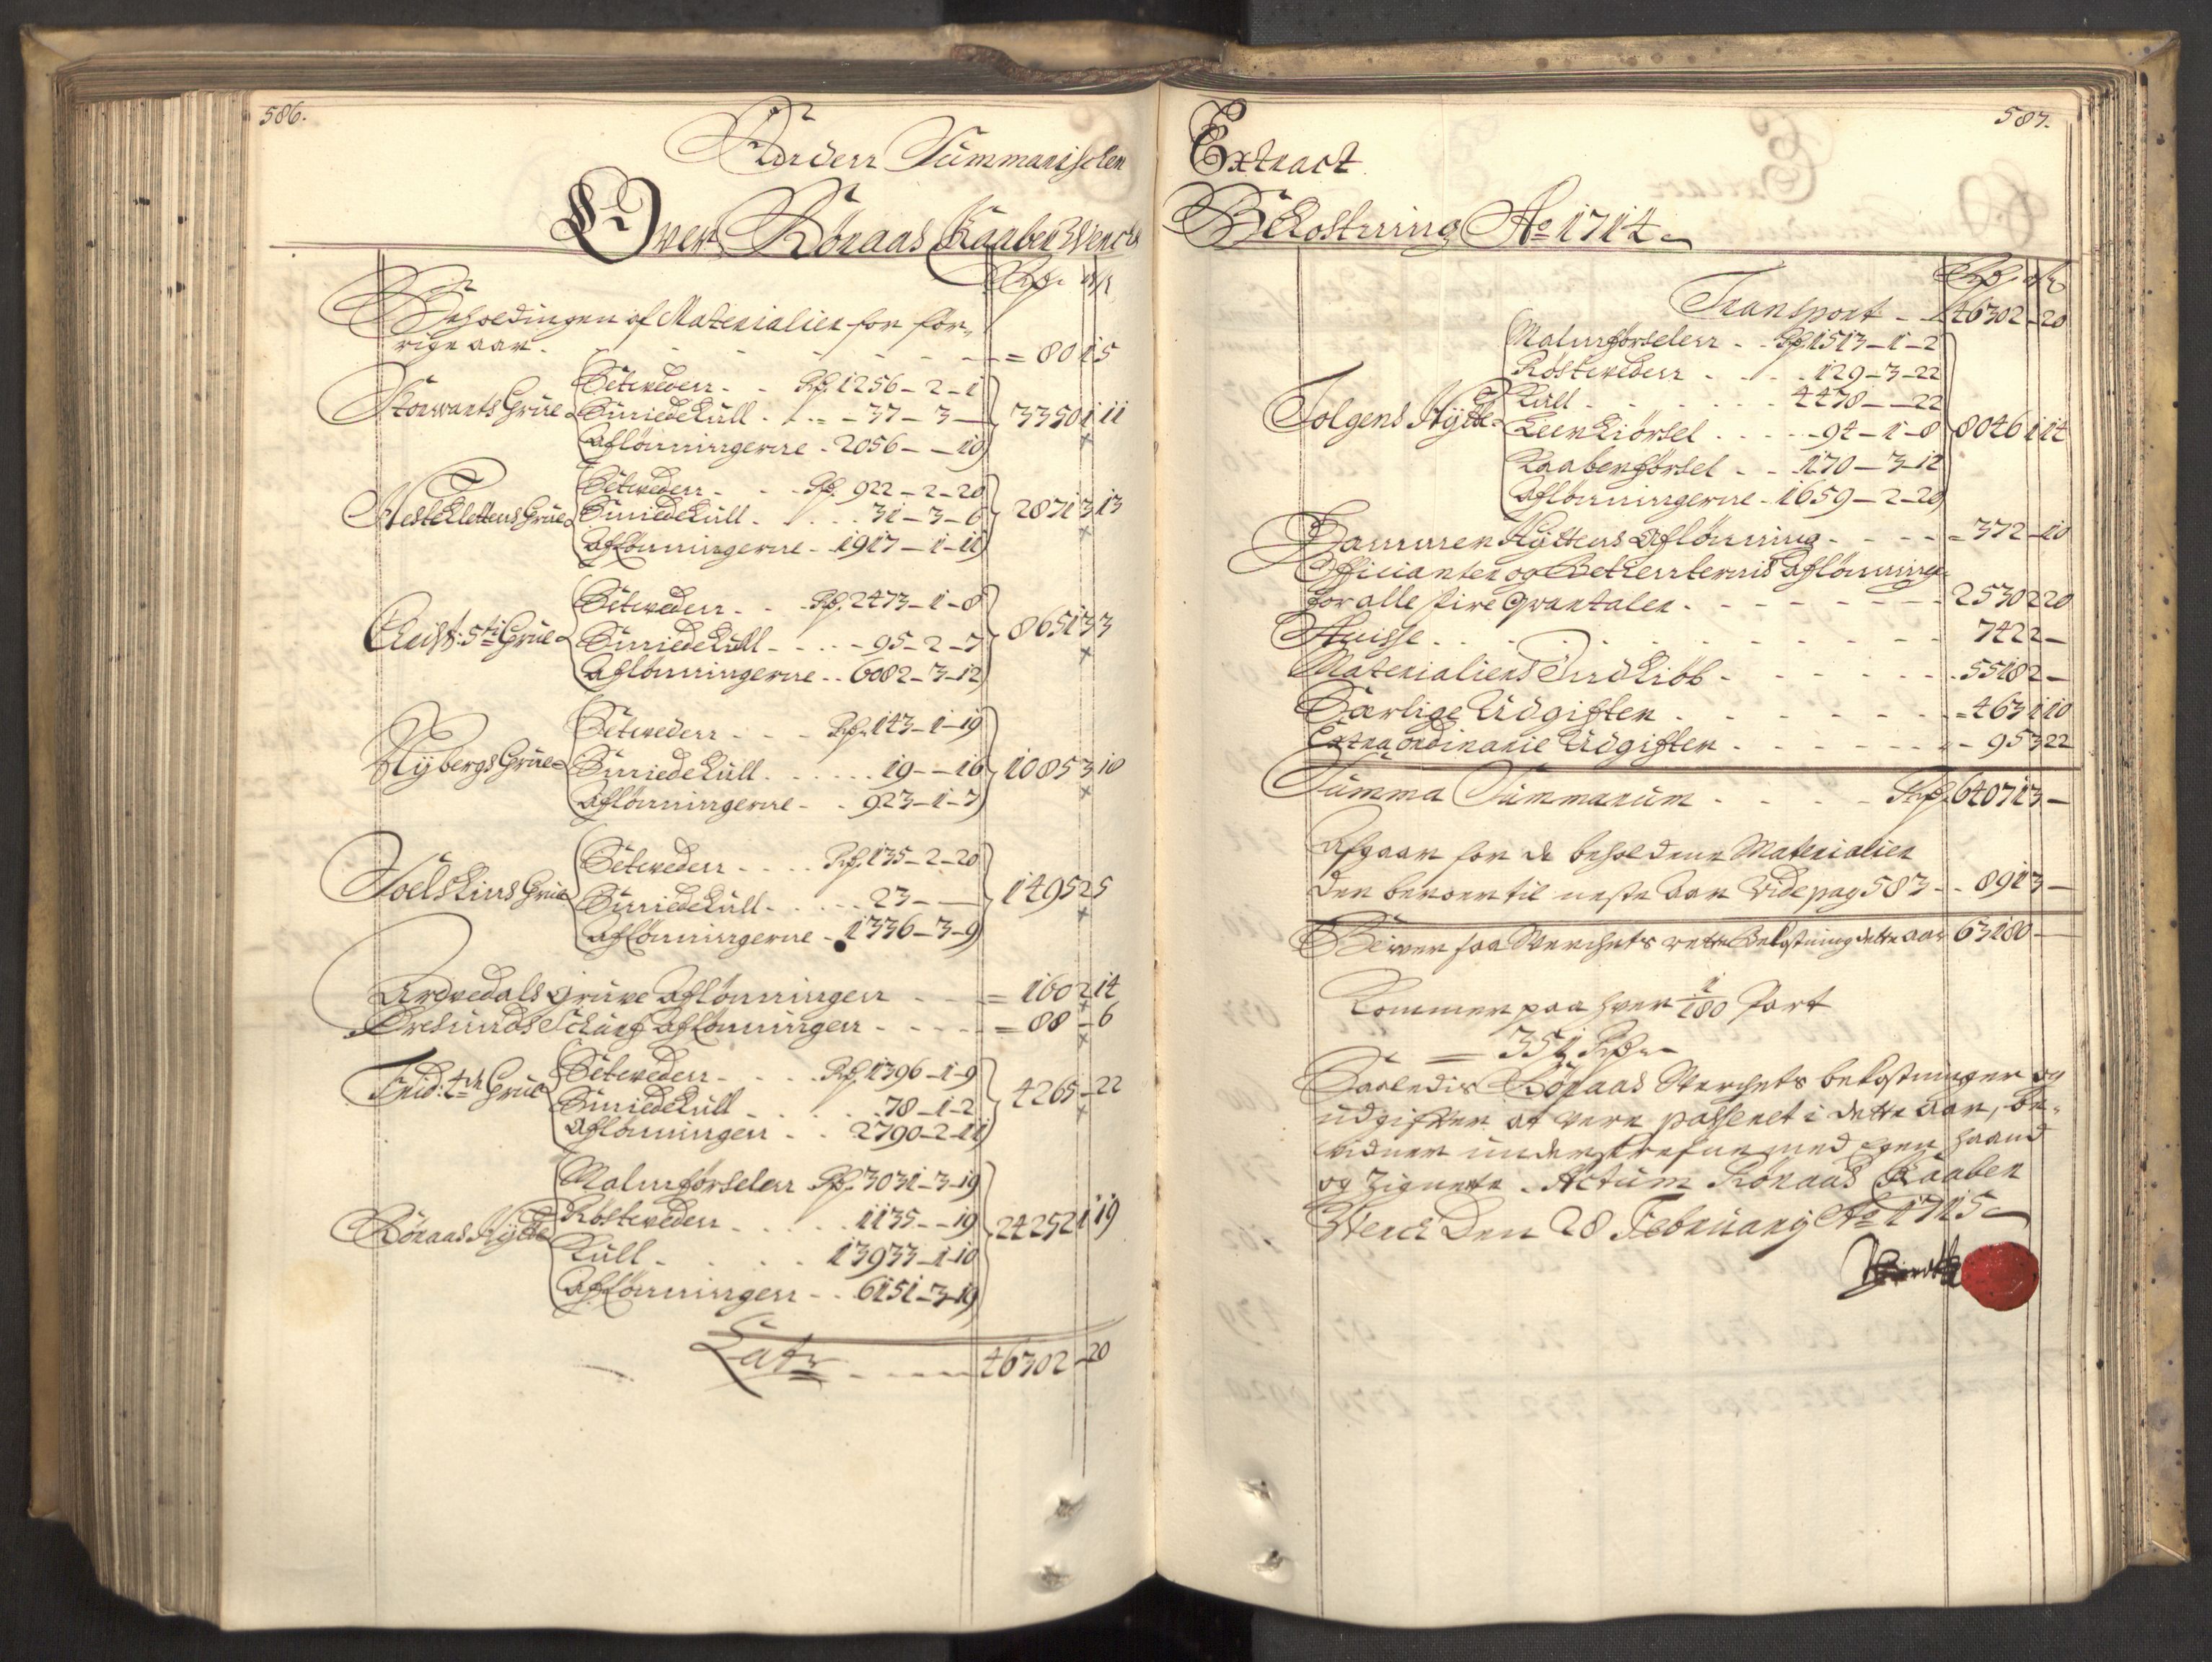 586.
Kort Summarischer
Over Röraas Kaaber Werck
Rdr. ort ß
Beholdingen af Materialier for for-
rige aar. - - - - - - = 80 1 5
Storwarts Grue
Setweden - - Rdr 1256 - 2 - 1
Smiedekull - - - 37 - 3 -
Aflönningerne - 2056 - - 10
3350 1 11
Hesteklettens Grue
Setweden - - Rdr 922 - 2 - 20
Smiedekull - - - 31 - 3 - 6
Aflönningerne - 1917 - 1 - 11
2871 3 13
Christ: 5ti Grue
Setweden - - Rdr 2473 - 1 - 8
Smiedekull - - - 95 - 2 - 7
Aflönningerne - - 6082 - 3 - 12
8651 3 3
Nybergs Grue
Setweden - - - Rdr 143 - 1 - 19
Smiedekull - - - 19 - - 16
Aflönningerne - - 923 - 1 - 7
1085 3 18
Hoelskins Grue
Setweden - - - Rdr 135 - 2 - 20
Smiedekull - - - 23 - -
Aflönningerne - 1336 - 3 - 9
1495 2 5
Ardvedals gruve Aflönningen - - = 160 2 14
Öresunds Schurf Aflönningen - - - = 88 - 6
Frid: 4ti Grue
Setweden - - - Rdr 1396 - 1 - 9
Smiedekull - - - 78 - 1 - 2
Aflönningen - - 2790 - 2 - 11
4265 - 22
Röraas Hytte
Malmförselen Rdr 3031 - 3 - 19
Röstweden - - - 1135 - - 19
Kull - - - 13933 - 1 - 10
Aflönningen - - 6151 - 3 - 19
24252 1 19
Latr - - - 46302 - 20
587.
Extract
Bekostning Ao 1714
Rdr ort ß
Transport - - 46302 - 20
Tolgens Hytte
Malmförselen - - Rdr 1513 - 1 - 2
Röstweden - - - 129 - 3 - 22
Kull - - - 4478 - - 22
Leerkiörsel - - - 94 - 1 - 8
Kaaberförsel - - 170 - 3 - 12
Aflönningerne - 1659 - 2 - 20
8046 1 14
Hammer Hyttens Aflönning - - - = 372 - 10
Officianter og Betienternis Aflönning
for alle fire Qvartaler - - - - 2530 2 20
Huisse - - - - 742 2 -
Materialiers Indkiöb - - - - 5518 2 -
Særlige Udgifter - - - - = 463 1 10
Extraordinarie Udgifter - - - - 95 3 22
Summa Summarum - - - - Rdr 64071 3 -
Afgaar for de beholdene Materialier
der berver til neste Aar vide pag 583 - - 891 3 -
Bliver saa Werchets rette Bekostning dette aar 63180 -
Kommer paa hver 1/180 Part
= 351 Rdr
Saaledis Röraas Werchets bekostninger og
udgifter at vere passeret i dette aar, be-
vidner underskrefne med egen haand
og Zignette. Actum Röraas Kaaber
Werck Den 28 February Ao 1715